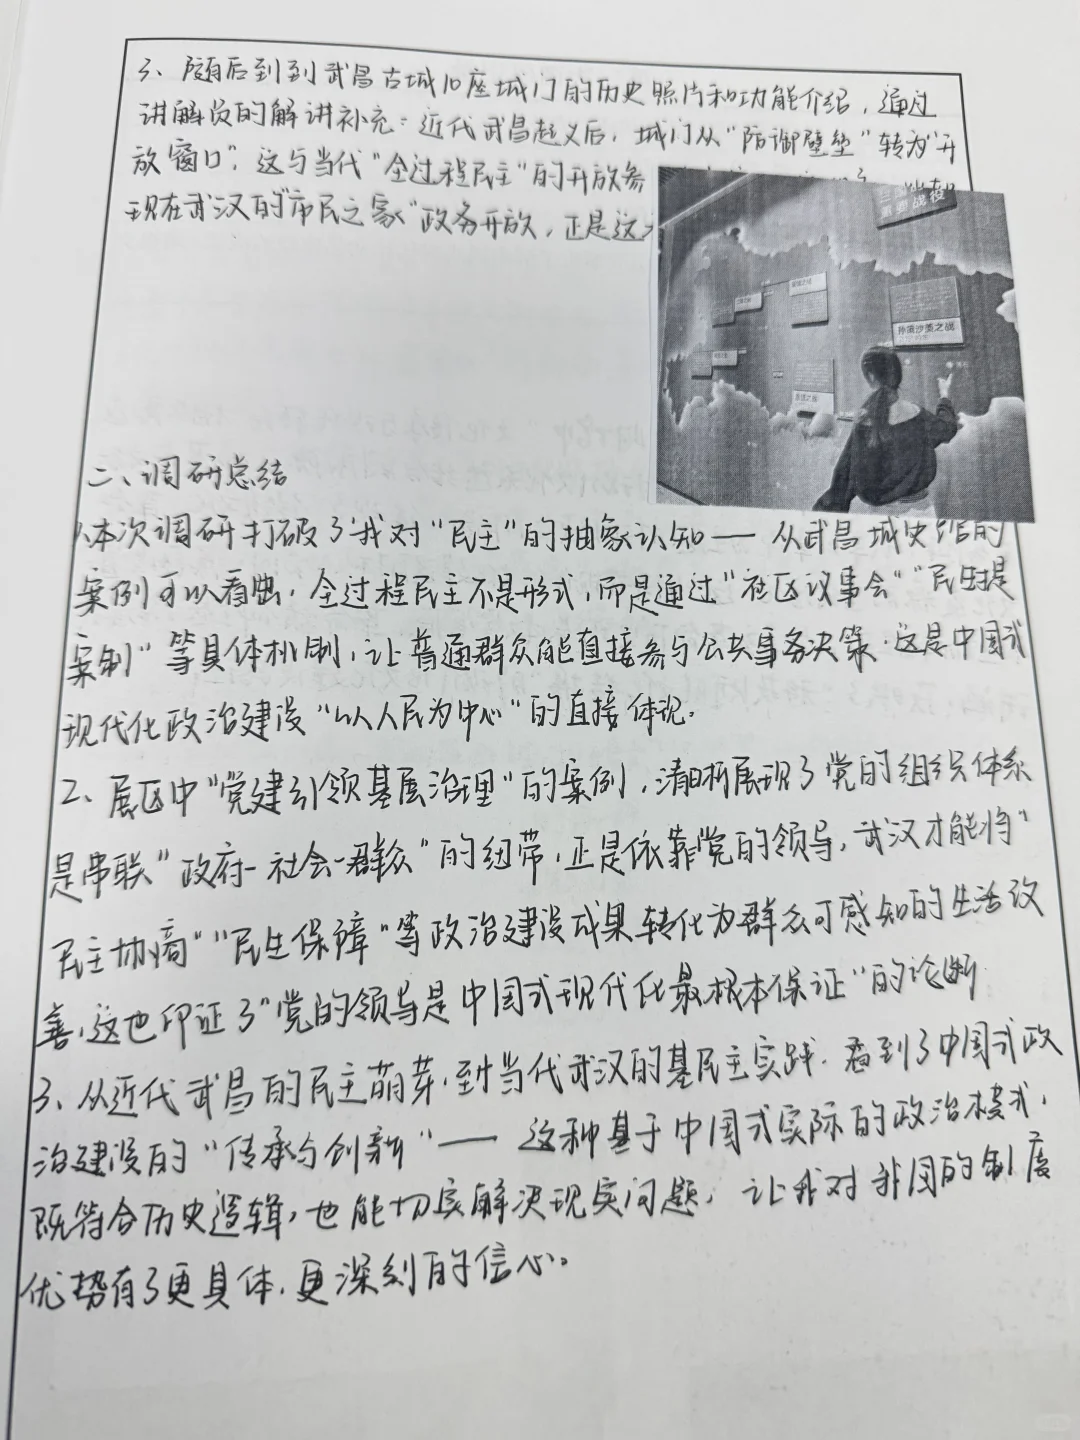 3、随后到到武昌古城10座城门的历史照片和功能介绍，通过
讲解员的解讲补充：近代武昌起义后，城门从“防御壁垒”转为“开
放窗口”，这与当代“全过程民主”的开放参
现在武汉的“市民之家”政务开放，正是这
重要战役
孙策沙羡之战
二、调研总结
1、本次调研打破了我对“民主”的抽象认知——从武昌城史馆的
案例可以看出，全过程民主不是形式，而是通过“社区议事会”“民生提
案制”等具体机制，让普通群众能直接参与公共事务决策，这是中国式
现代化政治建设“以人民为中心”的直接体现。
2、展区中“党建引领基层治理”的案例，清晰展现了党的组织体系
是串联“政府-社会-群众”的纽带，正是依靠党的领导，武汉才能将“
民主协商”“民生保障”等政治建设成果转化为群众可感知的生活改
善，这也印证了“党的领导是中国式现代化最根本保证”的论断
3、从近代武昌的民主萌芽，到当代武汉的基民主实践，看到了中国式政
治建设的“传承与创新”——这种基于中国式实际的政治模式，
既符合历史逻辑，也能切实解决现实问题，让我对我国的制度
优势有了更具体，更深刻的信心。